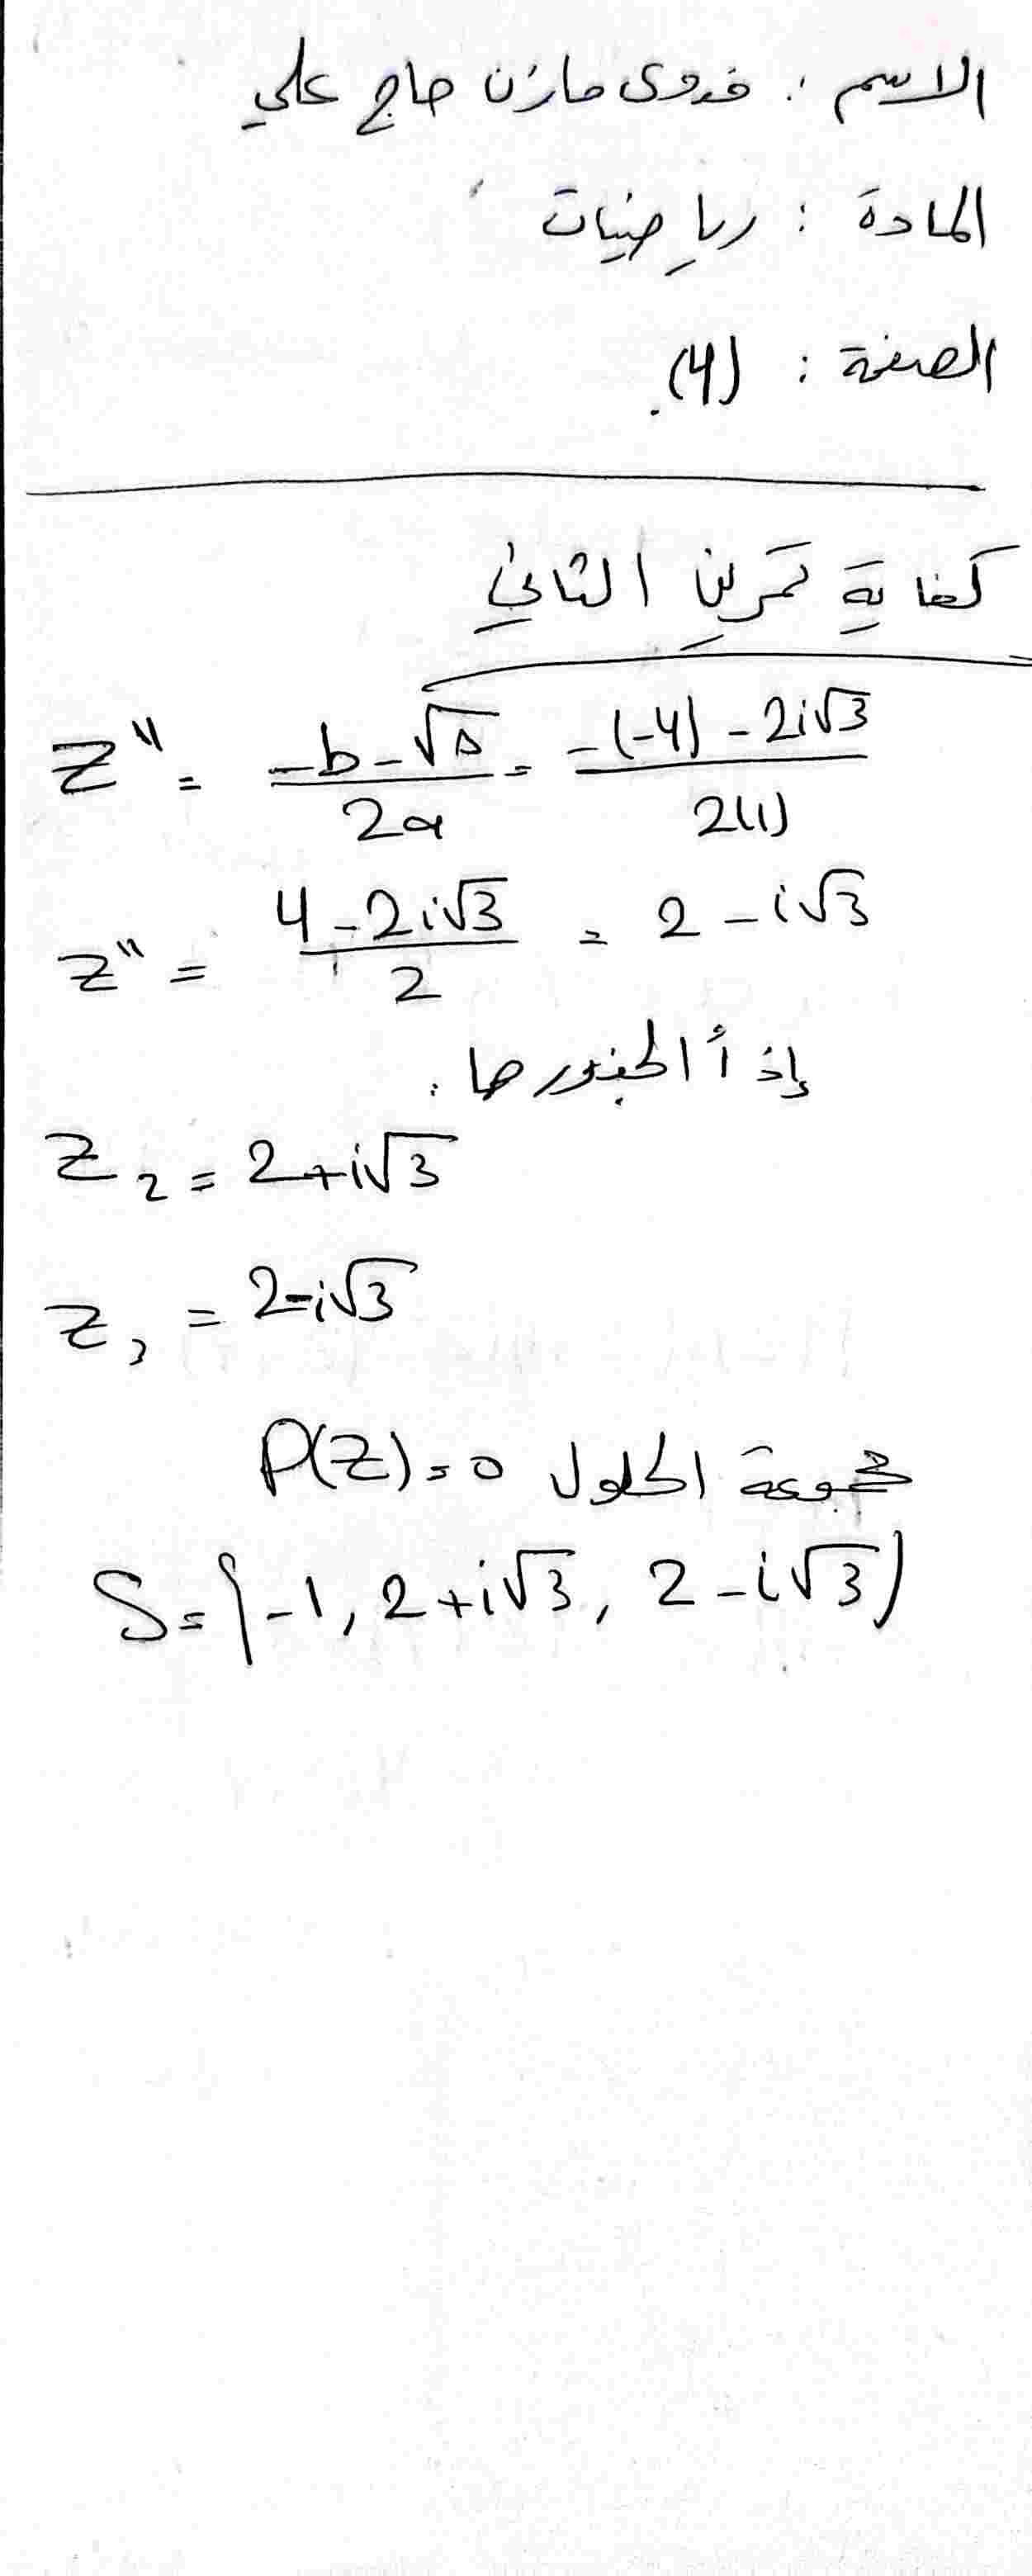 الاسم : فدوى مازن حاج علي
المادة : رياضيات
الصفحة : (4).
كفاية تمرين الثاني
Z'' = (-b - √Δ) / 2a = (-(-4) - 2i√3) / 2(1)
Z'' = (4 - 2i√3) / 2 = 2 - i√3
إذاً الجذور هما :
Z₂ = 2+i√3
Z₃ = 2-i√3
مجموعة الحلول P(Z)=0
S={-1, 2+i√3, 2-i√3)